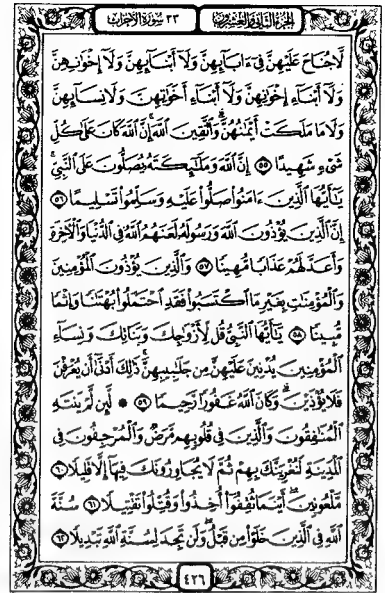 الجزء الثاني والعشرون
٣٣ سورة الأحزاب
لَّا جُنَاحَ عَلَيْهِنَّ فِىٓ ءَابَآئِهِنَّ وَلَآ أَبْنَآئِهِنَّ وَلَآ إِخْوَٰنِهِنَّ
وَلَآ أَبْنَآءِ إِخْوَٰنِهِنَّ وَلَآ أَبْنَآءِ أَخَوَٰتِهِنَّ وَلَا نِسَآئِهِنَّ
وَلَا مَا مَلَكَتْ أَيْمَٰنُهُنَّ ۗ وَٱتَّقِينَ ٱللَّهَ ۚ إِنَّ ٱللَّهَ كَانَ عَلَىٰ كُلِّ
شَىْءٍ شَهِيدًا ٥٥ إِنَّ ٱللَّهَ وَمَلَٰٓئِكَتَهُۥ يُصَلُّونَ عَلَى ٱلنَّبِىِّ ۚ
يَٰٓأَيُّهَا ٱلَّذِينَ ءَامَنُوا۟ صَلُّوا۟ عَلَيْهِ وَسَلِّمُوا۟ تَسْلِيمًا ٥٦
إِنَّ ٱلَّذِينَ يُؤْذُونَ ٱللَّهَ وَرَسُولَهُۥ لَعَنَهُمُ ٱللَّهُ فِى ٱلدُّنْيَا وَٱلْءَاخِرَةِ
وَأَعَدَّ لَهُمْ عَذَابًا مُّهِينًا ٥٧ وَٱلَّذِينَ يُؤْذُونَ ٱلْمُؤْمِنِينَ
وَٱلْمُؤْمِنَٰتِ بِغَيْرِ مَا ٱكْتَسَبُوا۟ فَقَدِ ٱحْتَمَلُوا۟ بُهْتَٰنًا وَإِثْمًا
مُّبِينًا ٥٨ يَٰٓأَيُّهَا ٱلنَّبِىُّ قُل لِّأَزْوَٰجِكَ وَبَنَاتِكَ وَنِسَآءِ
ٱلْمُؤْمِنِينَ يُدْنِينَ عَلَيْهِنَّ مِن جَلَٰبِيبِهِنَّ ۚ ذَٰلِكَ أَدْنَىٰٓ أَن يُعْرَفْنَ
فَلَا يُؤْذَيْنَ ۗ وَكَانَ ٱللَّهُ غَفُورًا رَّحِيمًا ٥٩ ۞ لَّئِن لَّمْ يَنتَهِ
ٱلْمُنَٰفِقُونَ وَٱلَّذِينَ فِى قُلُوبِهِم مَّرَضٌ وَٱلْمُرْجِفُونَ فِى
ٱلْمَدِينَةِ لَنُغْرِيَنَّكَ بِهِمْ ثُمَّ لَا يُجَاوِرُونَكَ فِيهَآ إِلَّا قَلِيلًا ٦٠
مَّلْعُونِينَ ۖ أَيْنَمَا ثُقِفُوٓا۟ أُخِذُوا۟ وَقُتِّلُوا۟ تَقْتِيلًا ٦١ سُنَّةَ
ٱللَّهِ فِى ٱلَّذِينَ خَلَوْا۟ مِن قَبْلُ ۖ وَلَن تَجِدَ لِسُنَّةِ ٱللَّهِ تَبْدِيلًا ٦٢
٤٢٦